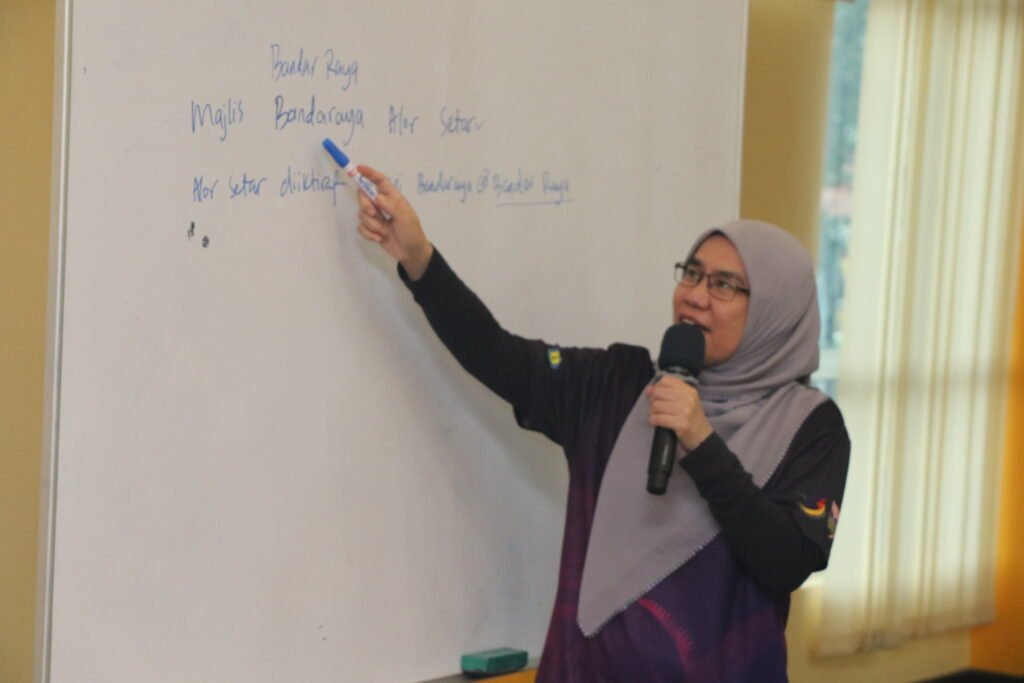 Bandar Raya
Majlis Bandaraya Alor Setar
Alor Setar diiktiraf Bandaraya @ Bandar Raya